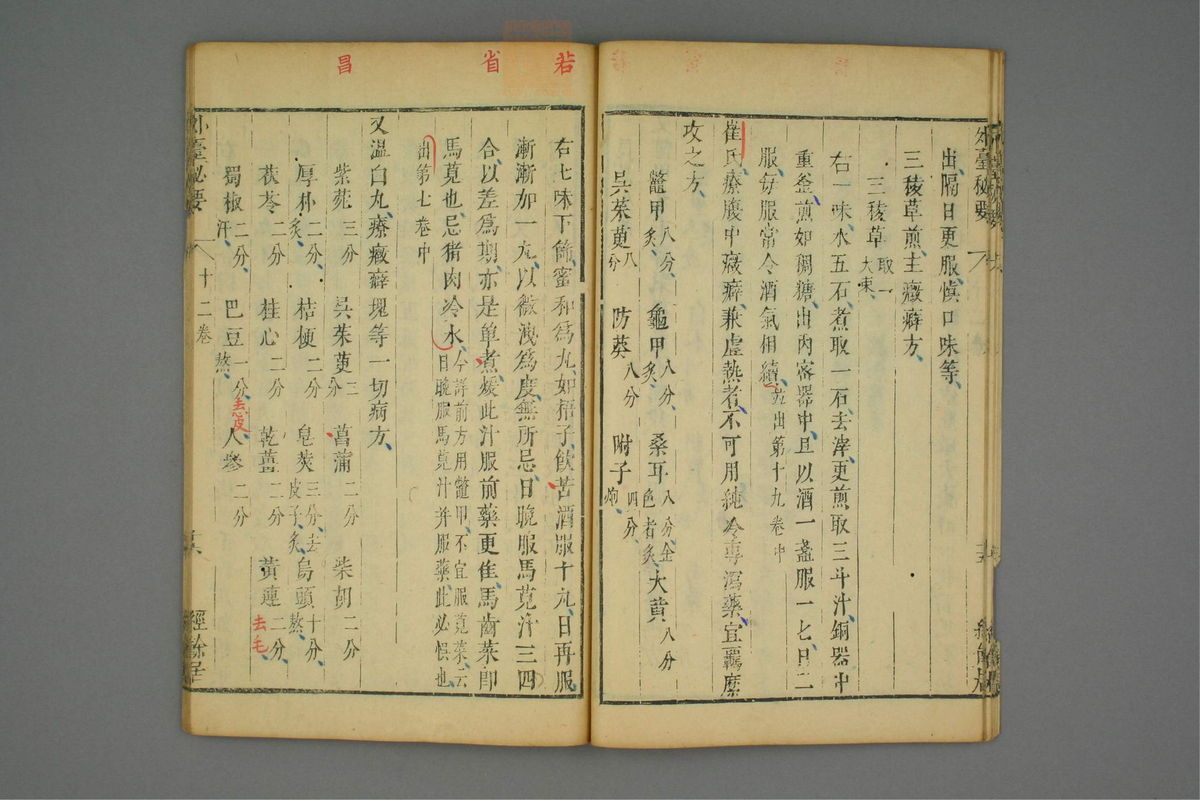 外臺秘要
出隔日更服慎口味等
三稜草煎主癥癖方
三稜草取一大束
右一味水五石煮取一石去滓更煎取三斗汁銅器中
重釜煎如稠糖出內密器中旦以酒一盞服一匕日二
服每服當令酒氣相續並出第十九卷中
崔氏療腹中癥癖兼虛熱者不可用純冷專瀉藥宜羈縻
攻之方
鼈甲八分炙 龜甲八分炙 桑耳八分金色者炙 大黄八分
吳茱萸八分 防葵八分 附子四分炮
若 省 昌
右七味下篩蜜和爲丸如梧子飲苦酒服十丸日再服
漸漸加一丸以微洩爲度無所忌日晚服馬莧汁三四
合以差爲期亦是单煮煖此汁服前藥更佳馬齒菜即
馬莧也忌猪肉冷水今詳前方用鼈甲不宜服莧菜云日晚服馬莧汁并服藥此必悮也
出第七卷中
又温白丸療癥癖塊等一切病方
紫菀三分 吳茱萸三分 菖蒲二分 柴胡二分
厚朴二分炙 桔梗二分 皂莢三分去皮子炙 烏頭十分熬
茯苓二分 桂心二分 乾薑二分 黃連二分去毛
蜀椒二分汗 巴豆一分熬去皮 人參二分
外臺秘要 十二卷 經餘居